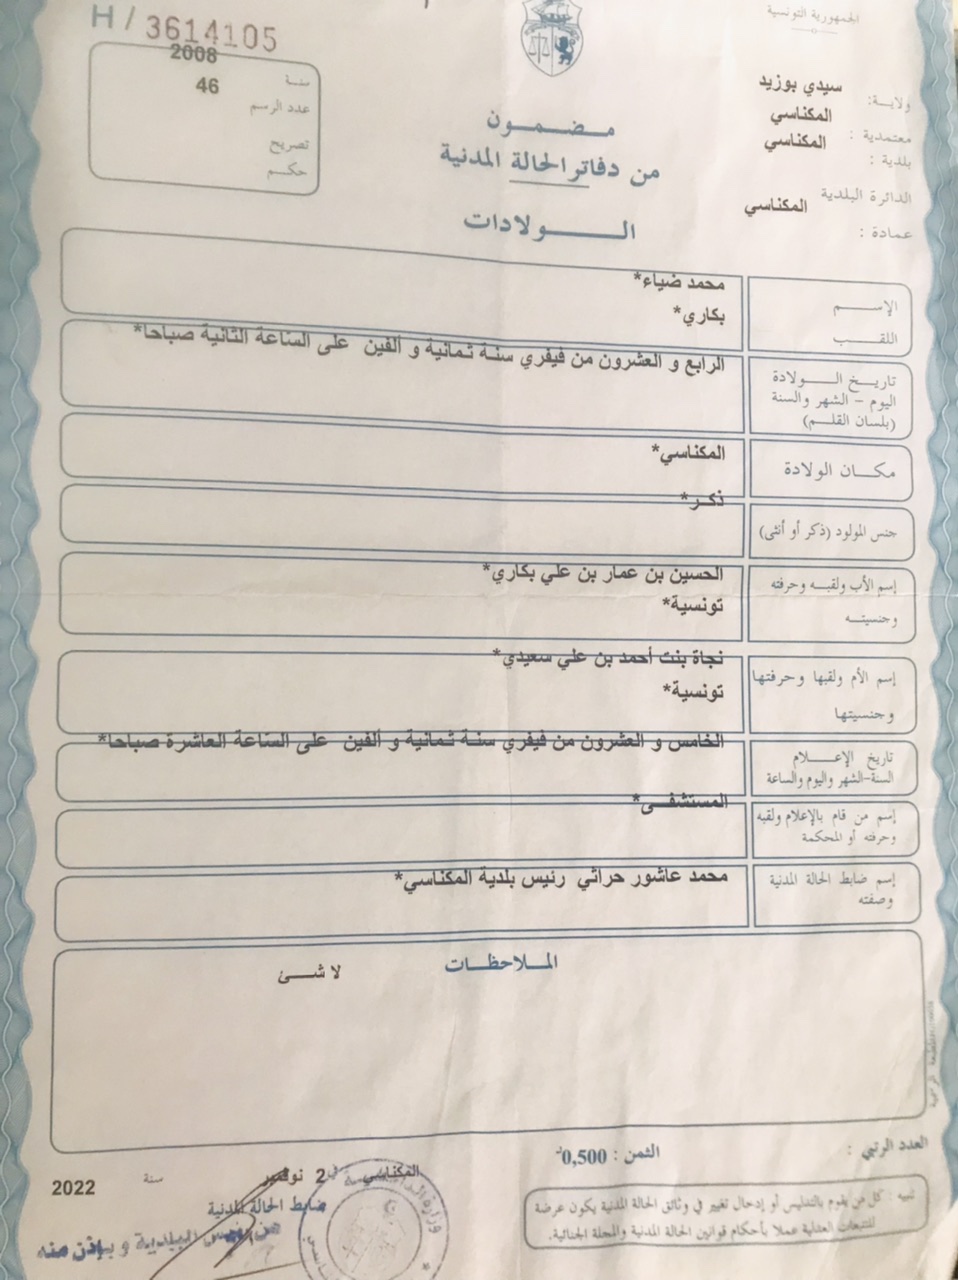 H / 3614105
الجمهورية التونسية
سنة 2008
عدد الرسم 46
تصريح
حكم
ولاية: سيدي بوزيد
معتمدية : المكناسي
بلدية : المكناسي
الدائرة البلدية
عمادة : المكناسي
مضمون
من دفاتر الحالة المدنية
الولادات
الإسم محمد ضياء*
اللقب بكاري*
تاريخ الولادة
اليوم - الشهر والسنة
(بلسان القلم)
الرابع و العشرون من فيفري سنة ثمانية و ألفين على الساعة الثانية صباحا*
مكان الولادة المكناسي*
جنس المولود (ذكر أو أنثى) ذكر*
إسم الأب ولقبه وحرفته
وجنسيته
الحسين بن عمار بن علي بكاري*
تونسية*
إسم الأم ولقبها وحرفتها
وجنسيتها
نجاة بنت أحمد بن علي سعيدي*
تونسية*
تاريخ الإعلام
السنة-الشهر واليوم والساعة
الخامس و العشرون من فيفري سنة ثمانية و ألفين على الساعة العاشرة صباحا*
إسم من قام بالإعلام ولقبه
وحرفته أو المحكمة
المستشفى*
إسم ضابط الحالة المدنية
وصفته
محمد عاشور حراثي رئيس بلدية المكناسي*
الملاحظات
لا شئ
العدد الرتبي :
الثمن : 0,500د
المكناسي في 2 نوفمبر سنة 2022
ضابط الحالة المدنية
عن رئيس البلدية و بإذن منه
تنبيه : كل من يقوم بالتدليس أو إدخال تغيير في وثائق الحالة المدنية يكون عرضة
للتتبعات العدلية عملا بأحكام قوانين الحالة المدنية والمجلة الجنائية.